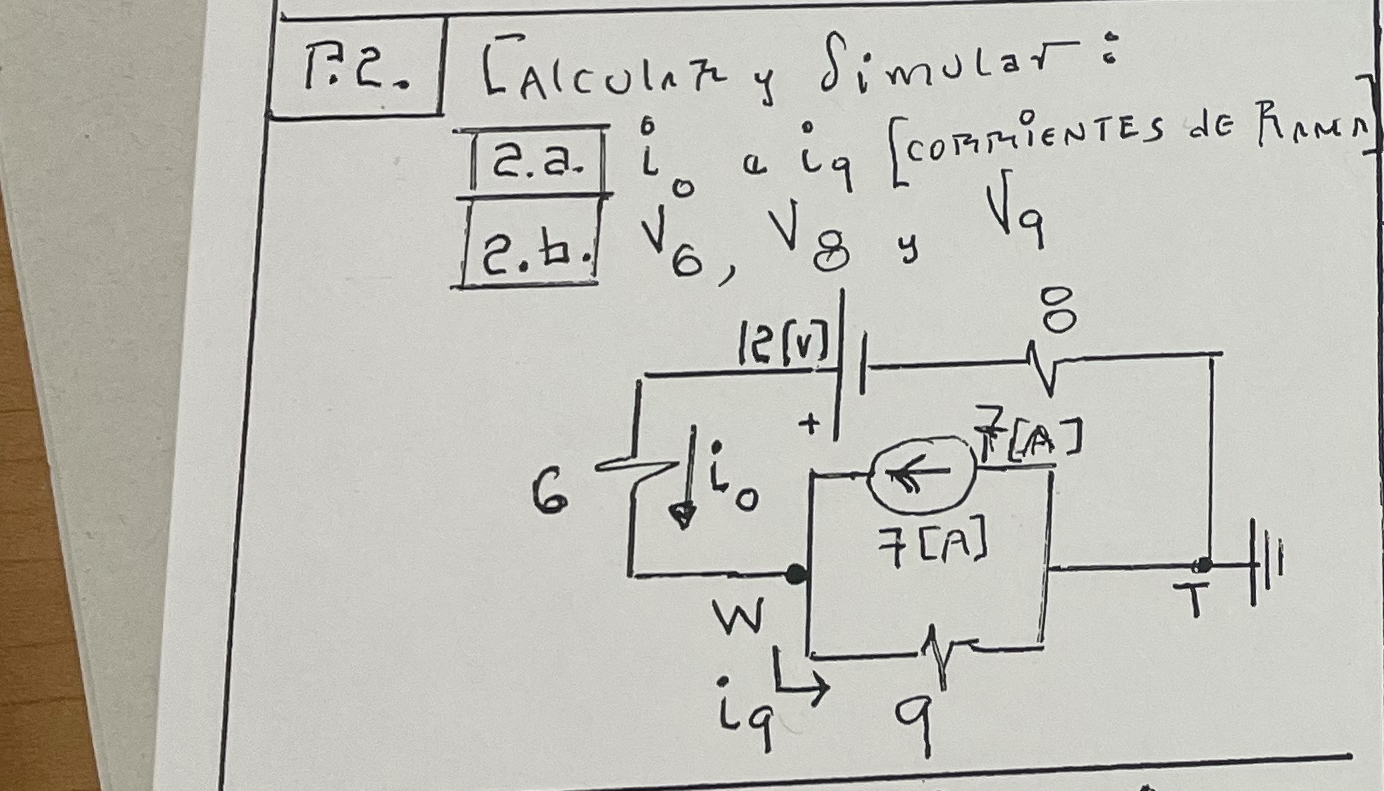 P.2. CAlculAR y Simular:
2.a. i₀ a i₉ [CORRiENTES dE RAMA]
2.b. V₆, V₈ y V₉
8
12[V]
+
7[A]
6
i₀
7[A]
W
T
i₉
9